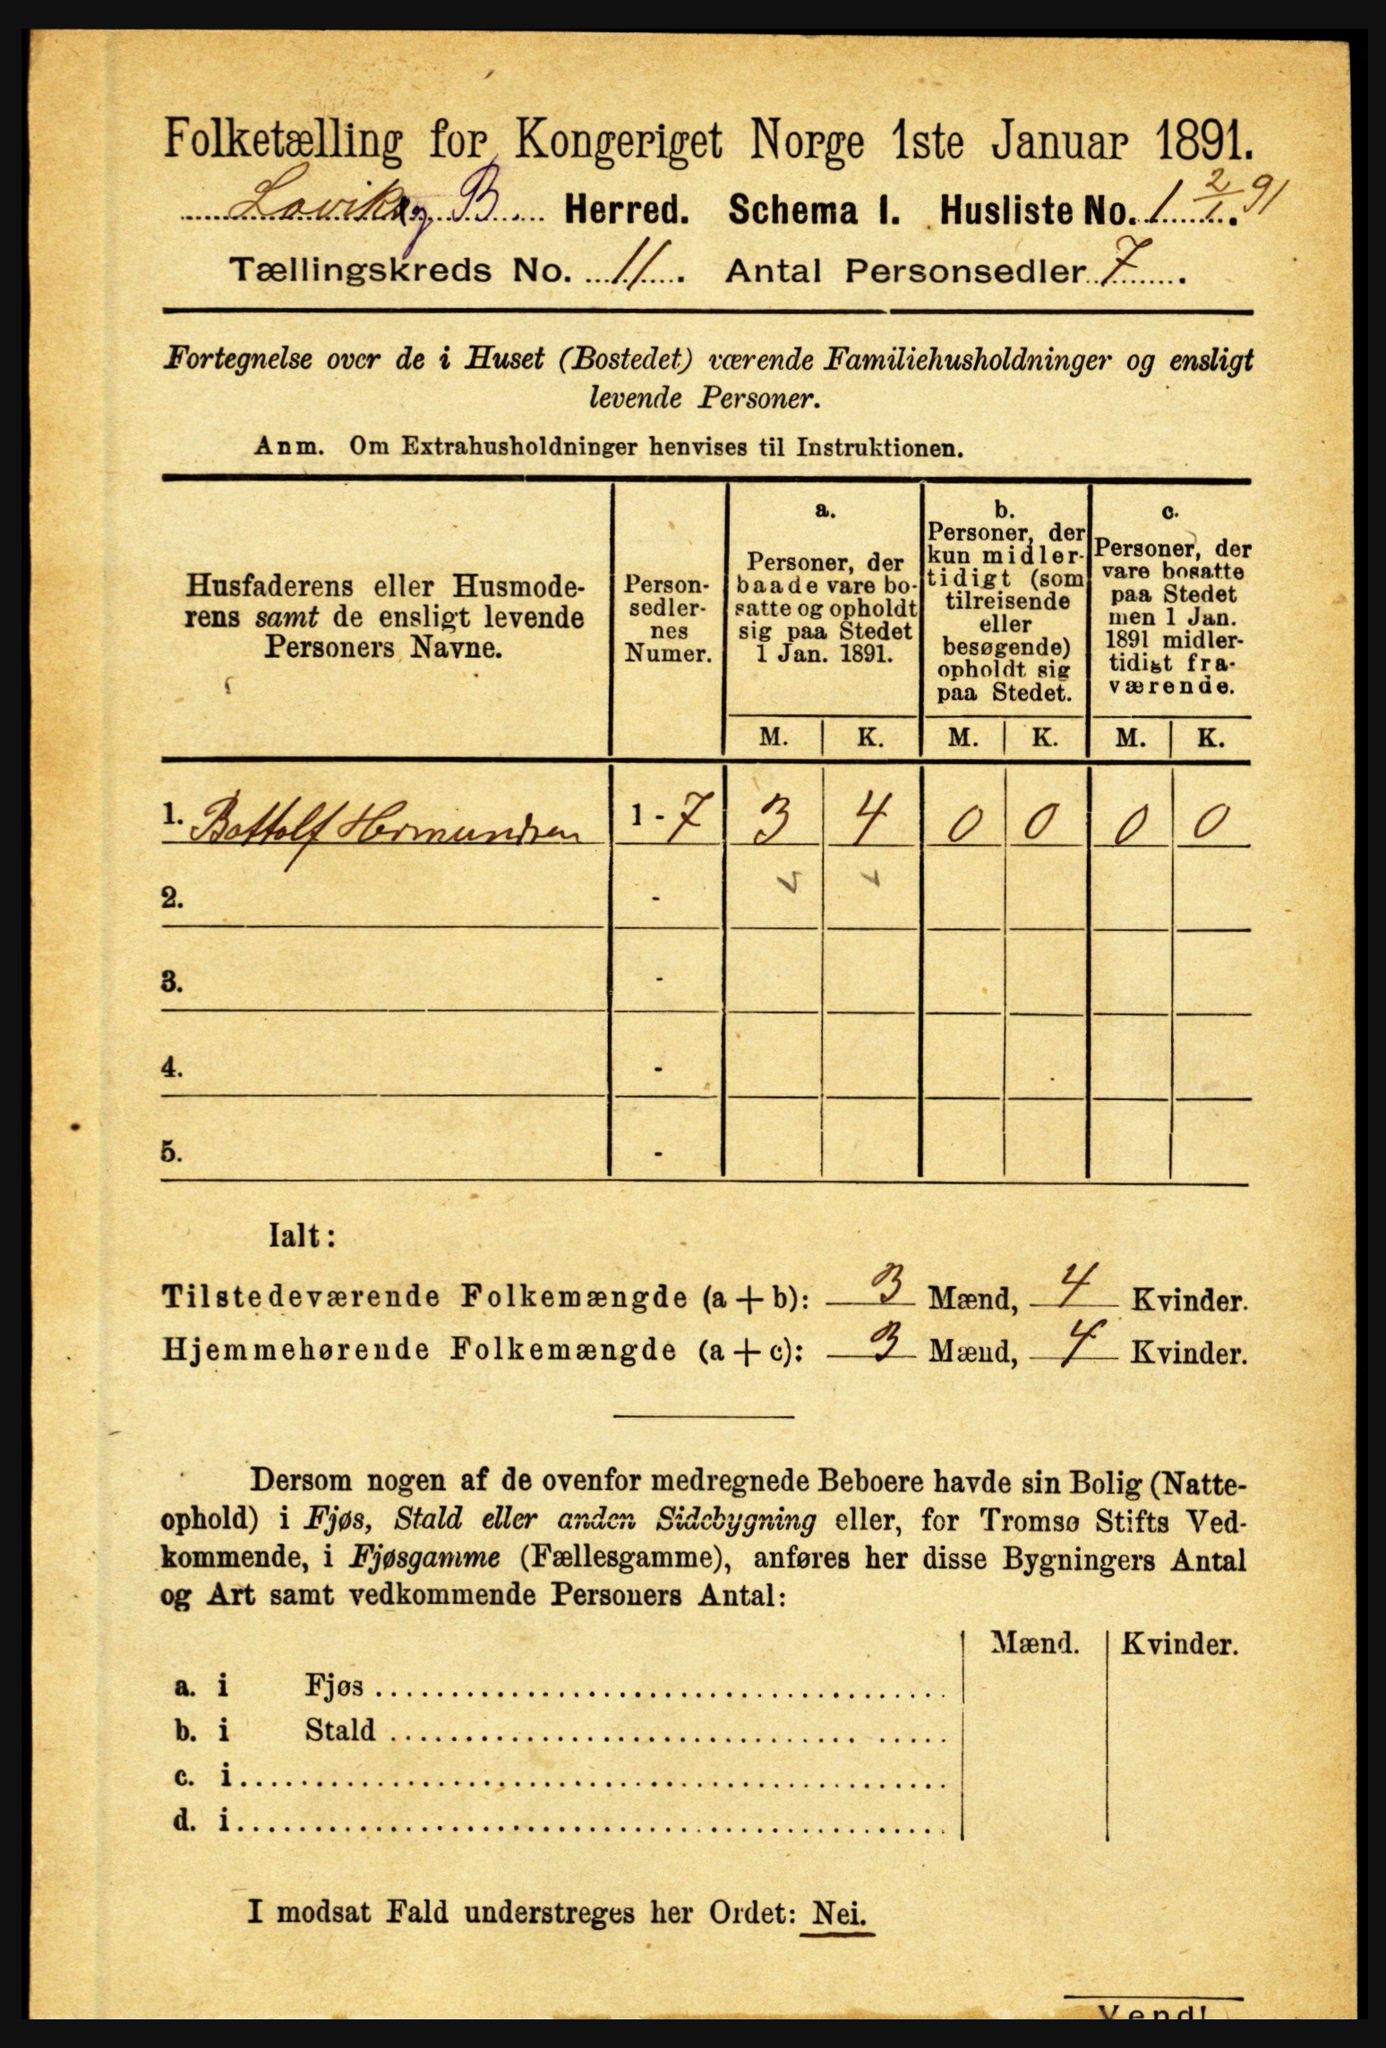 Folketælling for Kongeriget Norge 1ste Januar 1891.
Lavik og B. Herred. Schema I. Husliste No. 1 2/1 91
Tællingskreds No. 11. Antal Personsedler 7.
Fortegnelse over de i Huset (Bostedet) værende Familiehusholdninger og ensligt
levende Personer.
Anm. Om Extrahusholdninger henvises til Instruktionen.
Husfaderens eller Husmode-
rens samt de ensligt levende
Personers Navne.
Person-
sedler-
nes
Numer.
a.
Personer, der
baade vare bo-
satte og opholdt
sig paa Stedet
1 Jan. 1891.
b.
Personer, der
kun midler-
tidigt (som
tilreisende
eller
besøgende)
opholdt sig
paa Stedet.
c.
Personer, der
vare bosatte
paa Stedet
men 1 Jan.
1891 midler-
tidigt fra-
værende.
M. K. M. K. M. K.
1. Bottolf Hermundsen 1 - 7 3 4 0 0 0 0
2. -
3. -
4. -
5. -
Ialt:
Tilstedeværende Folkemængde (a + b): 3 Mænd, 4 Kvinder.
Hjemmehørende Folkemængde (a + c): 3 Mænd, 4 Kvinder.
Dersom nogen af de ovenfor medregnede Beboere havde sin Bolig (Natte-
ophold) i Fjøs, Stald eller anden Sidebygning eller, for Tromsø Stifts Ved-
kommende, i Fjøsgamme (Fællesgamme), anføres her disse Bygningers Antal
og Art samt vedkommende Personers Antal:
Mænd. Kvinder.
a. i Fjøs
b. i Stald
c. i
d. i
I modsat Fald understreges her Ordet: Nei.
Vend!